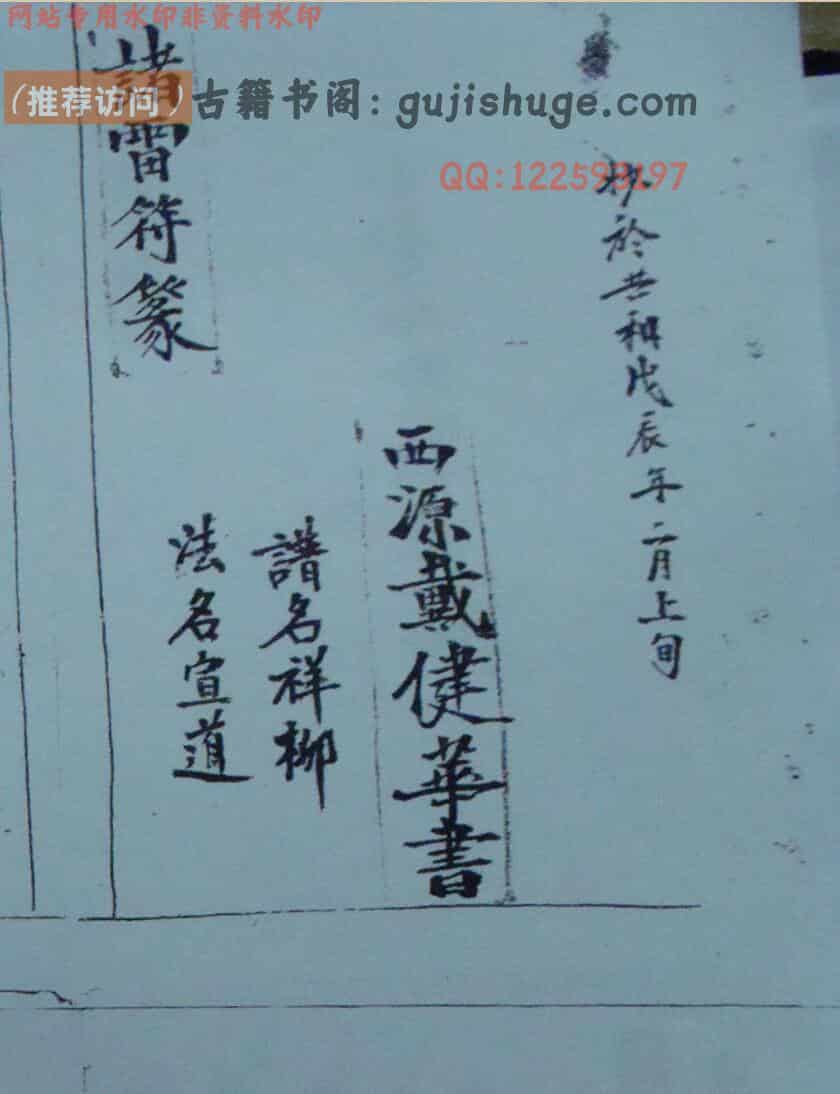 网站专用水印非资料水印
（推荐访问）古籍书阁：gujishuge.com
抄於共和戊辰年二月上旬
西源戴健華書
譜名祥柳
法名宣道
諸雷符篆